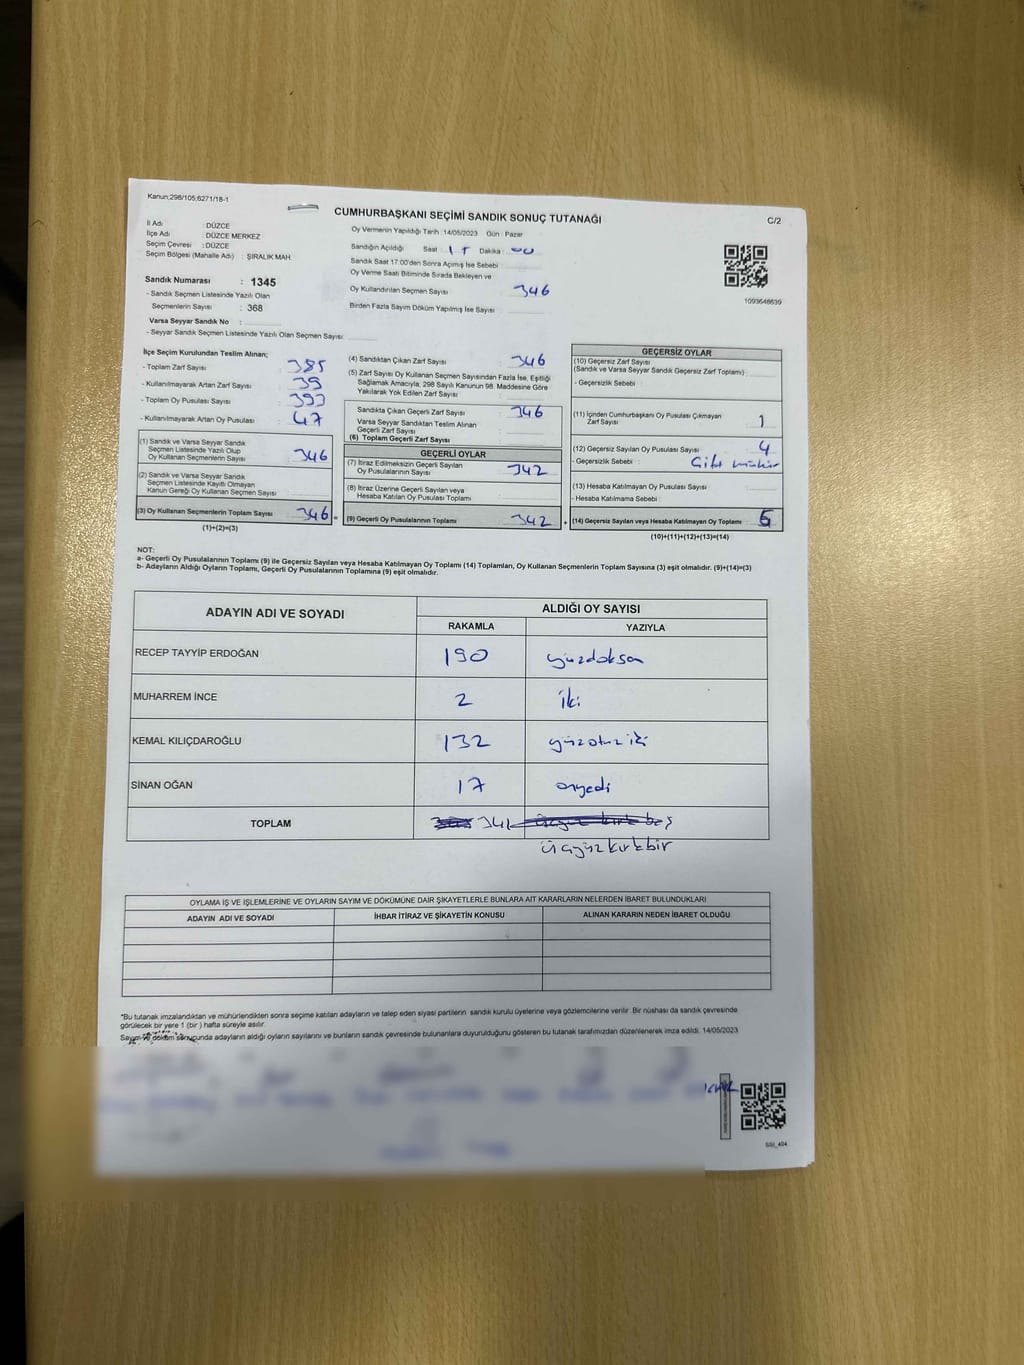 Kanun;298/105;6271/18-1
CUMHURBAŞKANI SEÇİMİ SANDIK SONUÇ TUTANAĞI
C/2
İl Adı : DÜZCE
İlçe Adı : DÜZCE MERKEZ
Seçim Çevresi : DÜZCE
Seçim Bölgesi (Mahalle Adı) : ŞIRALIK MAH.
Sandık Numarası : 1345
- Sandık Seçmen Listesinde Yazılı Olan
Seçmenlerin Sayısı : 368
Varsa Seyyar Sandık No :
- Seyyar Sandık Seçmen Listesinde Yazılı Olan Seçmen Sayısı:
Oy Vermenin Yapıldığı Tarih :14/05/2023 Gün : Pazar
Sandığın Açıldığı Saat : 17 Dakika : 00
Sandık Saat 17:00'den Sonra Açımış İse Sebebi :
Oy Verme Saati Bitiminde Sırada Bekleyen ve
Oy Kullandırılan Seçmen Sayısı : 346
Birden Fazla Sayım Döküm Yapılmış İse Sayısı :
1093648639
İlçe Seçim Kurulundan Teslim Alınan;
- Toplam Zarf Sayısı : 385
- Kullanılmayarak Artan Zarf Sayısı : 39
- Toplam Oy Pusulası Sayısı : 393
- Kullanılmayarak Artan Oy Pusulası : 47
(1) Sandık ve Varsa Seyyar Sandık
Seçmen Listesinde Yazılı Olup
Oy Kullanan Seçmenlerin Sayısı : 346
(2) Sandık ve Varsa Seyyar Sandık
Seçmen Listesinde Kayıtlı Olmayan
Kanun Gereği Oy Kullanan Seçmen Sayısı :
(3) Oy Kullanan Seçmenlerin Toplam Sayısı : 346 =
(1)+(2)=(3)
(4) Sandıktan Çıkan Zarf Sayısı : 346
(5) Zarf Sayısı Oy Kullanan Seçmen Sayısından Fazla İse, Eşitliği
Sağlamak Amacıyla, 298 Sayılı Kanunun 98. Maddesine Göre
Yakılarak Yok Edilen Zarf Sayısı :
Sandıkta Çıkan Geçerli Zarf Sayısı : 346
Varsa Seyyar Sandıktan Teslim Alınan
Geçerli Zarf Sayısı :
(6) Toplam Geçerli Zarf Sayısı :
GEÇERLİ OYLAR
(7) İtiraz Edilmeksizin Geçerli Sayılan
Oy Pusulalarının Sayısı : 342
(8) İtiraz Üzerine Geçerli Sayılan veya
Hesaba Katılan Oy Pusulası Toplamı :
(9) Geçerli Oy Pusulalarının Toplamı : 342 +
GEÇERSİZ OYLAR
(10) Geçersiz Zarf Sayısı
(Sandık ve Varsa Seyyar Sandık Geçersiz Zarf Toplamı) :
- Geçersizlik Sebebi :
(11) İçinden Cumhurbaşkanı Oy Pusulası Çıkmayan
Zarf Sayısı : 1
(12) Geçersiz Sayılan Oy Pusulası Sayısı : 4
- Geçersizlik Sebebi : Çift mühür
(13) Hesaba Katılmayan Oy Pusulası Sayısı :
- Hesaba Katılmama Sebebi :
(14) Geçersiz Sayılan veya Hesaba Katılmayan Oy Toplamı :
(10)+(11)+(12)+(13)=(14)
NOT:
a- Geçerli Oy Pusulalarının Toplamı (9) ile Geçersiz Sayılan veya Hesaba Katılmayan Oy Toplamı (14) Toplamları, Oy Kullanan Seçmenlerin Toplam Sayısına (3) eşit olmalıdır. (9)+(14)=(3)
b- Adayların Aldığı Oyların Toplamı, Geçerli Oy Pusulalarının Toplamına (9) eşit olmalıdır.
ADAYIN ADI VE SOYADI ALDIĞI OY SAYISI
RAKAMLA YAZIYLA
RECEP TAYYİP ERDOĞAN 190 yüzdoksan
MUHARREM İNCE 2 iki
KEMAL KILIÇDAROĞLU 132 yüzotuz iki
SİNAN OĞAN 17 onyedi
TOPLAM 341 üçyüz kırk beş
üçyüzkırkbir
OYLAMA İŞ VE İŞLEMLERİNE VE OYLARIN SAYIM VE DÖKÜMÜNE DAİR ŞİKAYETLERLE BUNLARA AİT KARARLARIN NELERDEN İBARET BULUNDUKLARI
ADAYIN ADI VE SOYADI İHBAR İTİRAZ VE ŞİKAYETİN KONUSU ALINAN KARARIN NEDEN İBARET OLDUĞU
*Bu tutanak imzalandıktan ve mühürlendikten sonra seçime katılan adayların ve talep eden siyasi partilerin sandık kurulu üyelerine veya gözlemcilerine verilir. Bir nüshası da sandık çevresinde
görülecek bir yere 1 (bir ) hafta süreyle asılır.
Sayım ve döküm sonucunda adayların aldığı oyların sayılarını ve bunların sandık çevresinde bulunanlara duyurulduğunu gösteren bu tutanak tarafımızdan düzenlenerek imza edildi. 14/05/2023